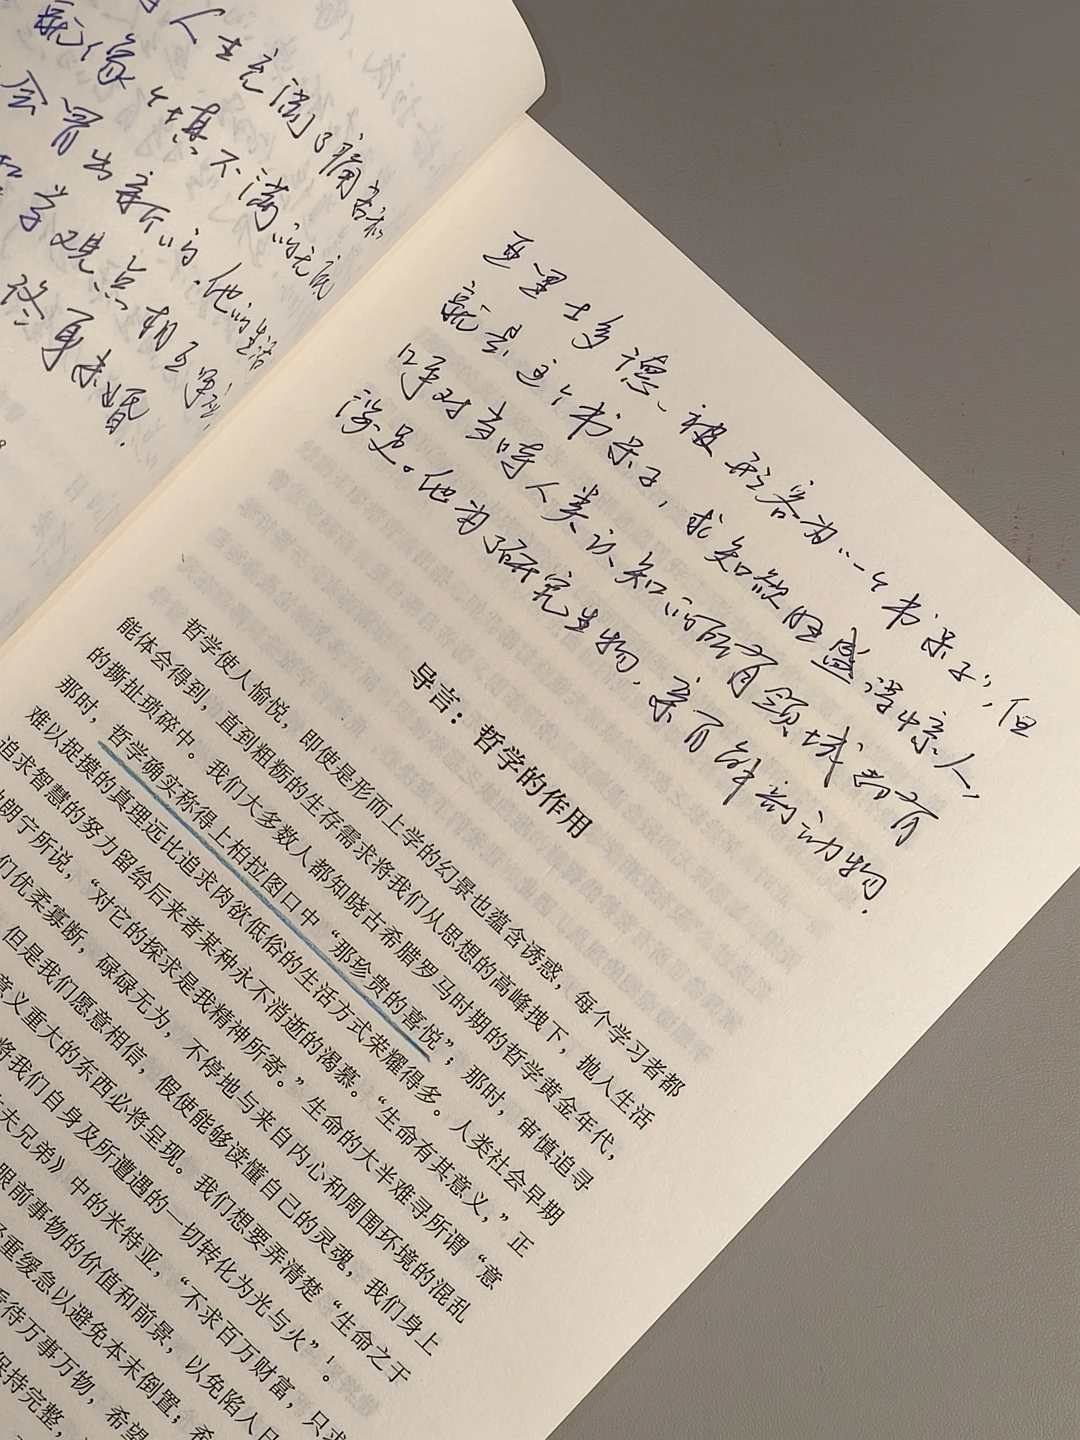 人生充满了痛苦和
就像个填不满的无底
会冒出新的.他的生活
学观点相互
终身未婚.
亚里士多德、被形容为“一个书呆子”,但
就是这个书呆子,求知欲旺盛得惊人,
呼对当时人类认知的所有领域都有
涉足。他为了研究生物,亲自解剖动物.
导言：哲学的作用
哲学使人愉悦，即使是形而上学的幻景也蕴含诱惑，每个学习者都
能体会得到，直到粗粝的生存需求将我们从思想的高峰拽下，抛入生活
的撕扯琐碎中。我们大多数人都知晓古希腊罗马时期的哲学黄金年代，
那时，哲学确实称得上柏拉图口中“那珍贵的喜悦”；那时，审慎追寻
难以捉摸的真理远比追求肉欲低俗的生活方式荣耀得多。人类社会早期
追求智慧的努力留给后来者某种永不消逝的渴慕。“生命有其意义，”正
朗宁所说，“对它的探求是我精神所寄。”生命的大半难寻所谓“意
们优柔寡断，碌碌无为，不停地与来自内心和周围环境的混乱
但是我们愿意相信，假使能够读懂自己的灵魂，我们身上
意义重大的东西必将呈现。我们想要弄清楚“生命之于
将我们自身及所遭遇的一切转化为光与火”！
夫兄弟》中的米特亚，“不求百万财富，只求
眼前事物的价值和前景，以免陷入日
重缓急以避免本末倒置；希
待万事万物，希望
保持完整，